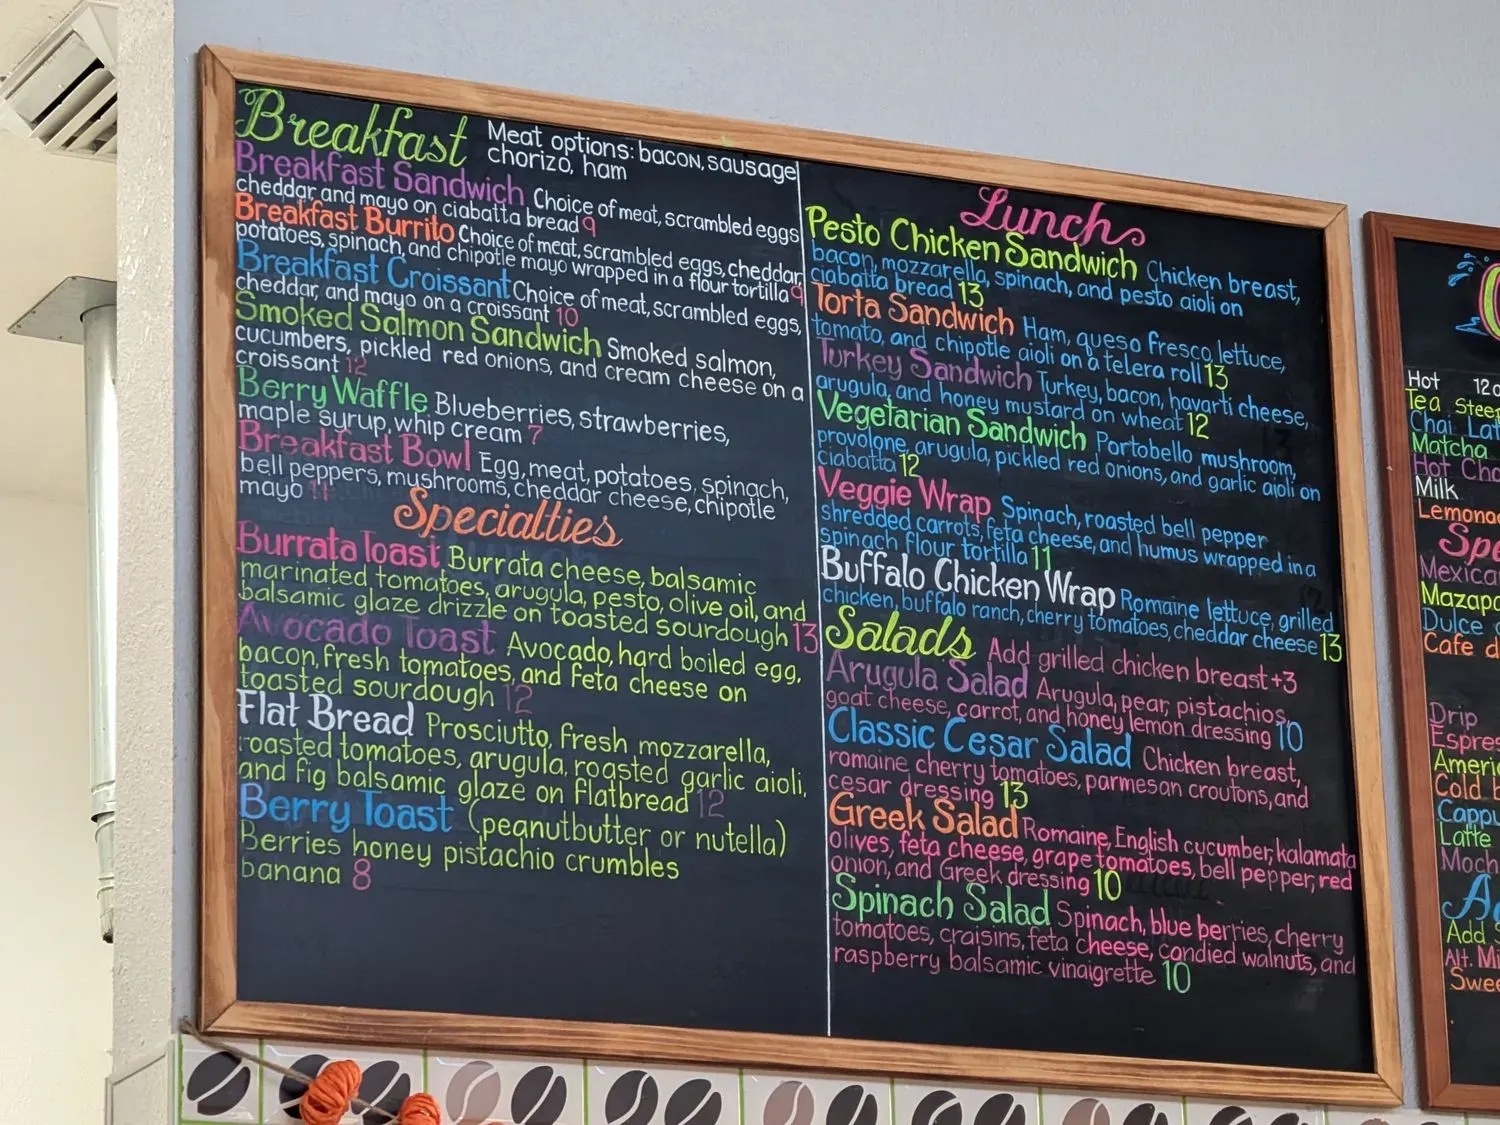 Breakfast
Meat options: bacon, sausage
chorizo, ham
Breakfast Sandwich Choice of meat, scrambled eggs
cheddar, and mayo on ciabatta bread 9
Breakfast Burrito Choice of meat, scrambled eggs, cheddar,
potatoes, spinach, and chipotle mayo wrapped in a flour tortilla 9
Breakfast Croissant Choice of meat, scrambled eggs,
cheddar, and mayo on a croissant 10
Smoked Salmon Sandwich Smoked salmon,
cucumbers, pickled red onions, and cream cheese on a
croissant 12
Berry Waffle Blueberries, strawberries,
maple syrup, whip cream 7
Breakfast Bowl Egg, meat, potatoes, spinach,
bell peppers, mushrooms, cheddar cheese, chipotle
mayo 11
Specialties
Burrata Toast Burrata cheese, balsamic
marinated tomatoes, arugula, pesto, olive oil, and
balsamic glaze drizzle on toasted sourdough 13
Avocado Toast Avocado, hard boiled egg,
bacon, fresh tomatoes, and feta cheese on
toasted sourdough 12
Flat Bread Prosciutto, fresh mozzarella,
roasted tomatoes, arugula, roasted garlic aioli,
and fig balsamic glaze on flatbread 12
Berry Toast (peanutbutter or nutella)
Berries honey pistachio crumbles
banana 8
Lunch
Pesto Chicken Sandwich Chicken breast,
bacon, mozzarella, spinach, and pesto aioli on
ciabatta bread 13
Torta Sandwich Ham, queso fresco, lettuce,
tomato, and chipotle aioli on a telera roll 13
Turkey Sandwich Turkey, bacon, havarti cheese,
arugula, and honey mustard on wheat 12
Vegetarian Sandwich Portobello mushroom,
provolone, arugula, pickled red onions, and garlic aioli on
ciabatta 12
Veggie Wrap Spinach, roasted bell pepper
shredded carrots, feta cheese, and humus wrapped in a
spinach flour tortilla 11
Buffalo Chicken Wrap Romaine lettuce, grilled
chicken, buffalo ranch, cherry tomatoes, cheddar cheese 13
Salads Add grilled chicken breast +3
Arugula Salad Arugula, pear, pistachios,
goat cheese, carrot, and honey lemon dressing 10
Classic Cesar Salad Chicken breast,
romaine cherry tomatoes, parmesan croutons, and
cesar dressing 13
Greek Salad Romaine, English cucumber, kalamata
olives, feta cheese, grape tomatoes, bell pepper, red
onion, and Greek dressing 10
Spinach Salad Spinach, blue berries, cherry
tomatoes, craisins, feta cheese, candied walnuts, and
raspberry balsamic vinaigrette 10
Hot 12o
Tea Stee
Chai Lat
Matcha
Hot Cho
Milk
Lemona
Spe
Mexica
Mazapa
Dulce
Cafe d
Drip
Espres
Americ
Cold b
Cappu
Latte
Moch
Add
Alt. Mi
Swee